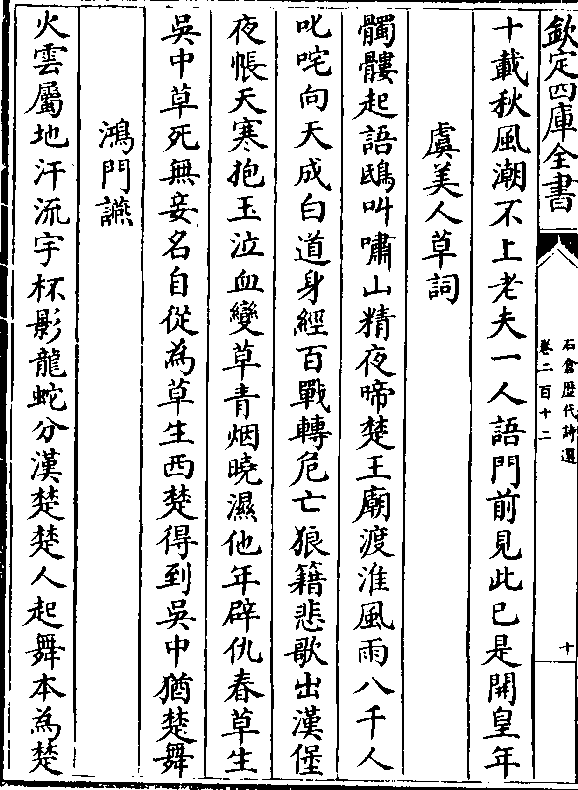 欽定四庫全書
石倉歴代詩選
卷二百十二
十
十載秋風潮不上老夫一人語門前見此已是開皇年
虞美人草詞
髑髏起語鴟叫嘯山精夜啼楚王廟渡淮風雨八千人
叱咤向天成白道身經百戰轉危亡狼籍悲歌出漢堡
夜帳天寒抱玉泣血變草青烟曉濕他年辟仇春草生
吳中草死無妾名自從為草生西楚得到吳中猶楚舞
鴻門讌
火雲屬地汗流宇杯影龍蛇分漢楚楚人起舞本為楚